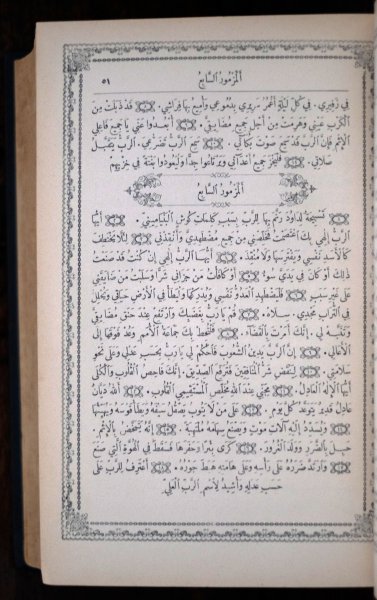 المزمور السابع ٥١
في زفيري. في كل ليلة أغمر سريري بدموعي وأميع بها فراشي. قد ذبلت من
الكرب عيني وهرمت من أجل جميع مضايقي. أبعدوا عني يا جميع فاعلي
الإثم فإن الرب قد سمع صوت بكائي. سمع الرب تضرعي. الرب يتقبل
صلاتي. فليخز جميع أعدائي ويرتاعوا جدا وليعودوا بغتة في خزيهم
المزمور السابع
تسبحة لداود رنم بها للرب بسبب كلمات كوش البنياميني. أيها
الرب إلهي بك اعتصمت فخلصني من جميع مضطهدي وأنقذني. لئلا تختطف
كالأسد نفسي وتفترسها ولا منقذ. أيها الرب إلهي إن كنت قد صنعت
ذلك أو كان في يدي سوء. أو كافأت من جزاني شرا وسلبت من ضايقني
على غير سبب. فليضطهد العدو نفسي ويدركها وليطأ في الأرض حياتي وليحلل
في التراب مجدي. سلاه. قم يا رب بغضبك وارتفع عند حنق مضايقي
وتنبه لي إنك أمرت بالقضاء. فتحيط بك جماعة الأمم وعد فوقها إلى
الأعالي. إن الرب يدين الشعوب فاحكم لي يا رب بحسب عدلي وعلى نحو
سلامتي. لينقض شر المنافقين فترفع الصديق. إنك فاحص القلوب والكلى
أيها الإله العادل. مجني عند الله مخلص المستقيمي القلوب. الله ديان
عادل قدير يتوعد كل يوم. على من لا يتوب يصقل سيفه ويطأ قوسه ويهيئها
ويسدد إليه آلات موت ويصنع سهامه ملتهبة. إنه يتمخض بالإثم.
حبل بالضرر وولد الزور. كرى بئرا وحفرها فسقط في الهوة التي صنع
وارتد ضرره على رأسه وعلى هامته هبط جوره. أعترف للرب على
حسب عدله وأشيد لاسم الرب العلي